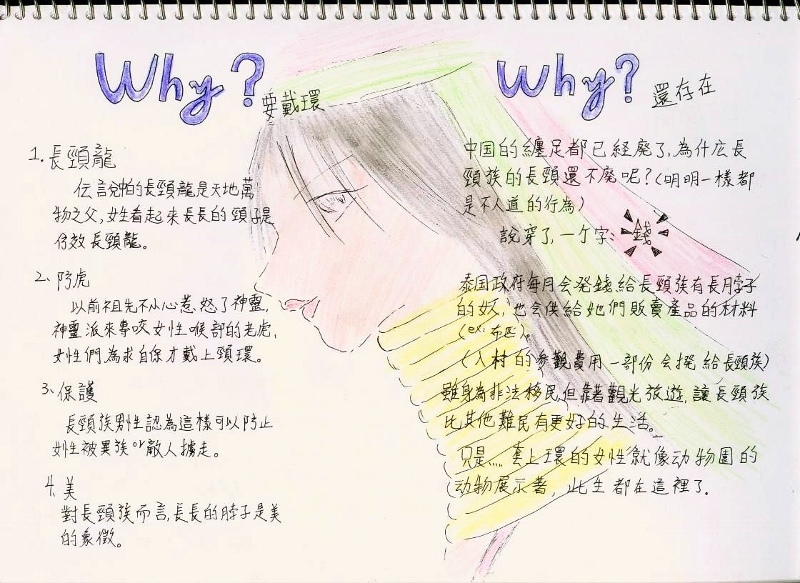 Why? 要戴環
1. 長頸龍
伝言說中的長頸龍是天地萬
物之父,女性看起來長長的頸子是
仿效長頸龍。
2. 防虎
以前祖先不小心惹怒了神靈,
神靈派來專咬女性喉部的老虎,
女性們為求自保才戴上頸環。
3. 保護
長頸族男性認為這樣可以防止
女性被異族or敵人擄走。
4. 美
對長頸族而言,長長的脖子是美
的象徵。
Why? 還存在
中国的纏足都已經廃了,為什広長
頸族的長頸還不廃呢?(明明一樣都
是不人道的行為)
說穿了,一个字:錢
泰国政府每月会発錢給長頸族有長脖子
的女人,也会供給她們販賣產品的材料
(ex:布匹)。
(入村的参觀費用一部份会撥給長頸族)
雖身為非法移民,但靠著觀光旅遊,讓長頸族
比其他難民有更好的生活。
只是..... 套上環的女性就像动物園的
动物展示者,此生都在這裡了.